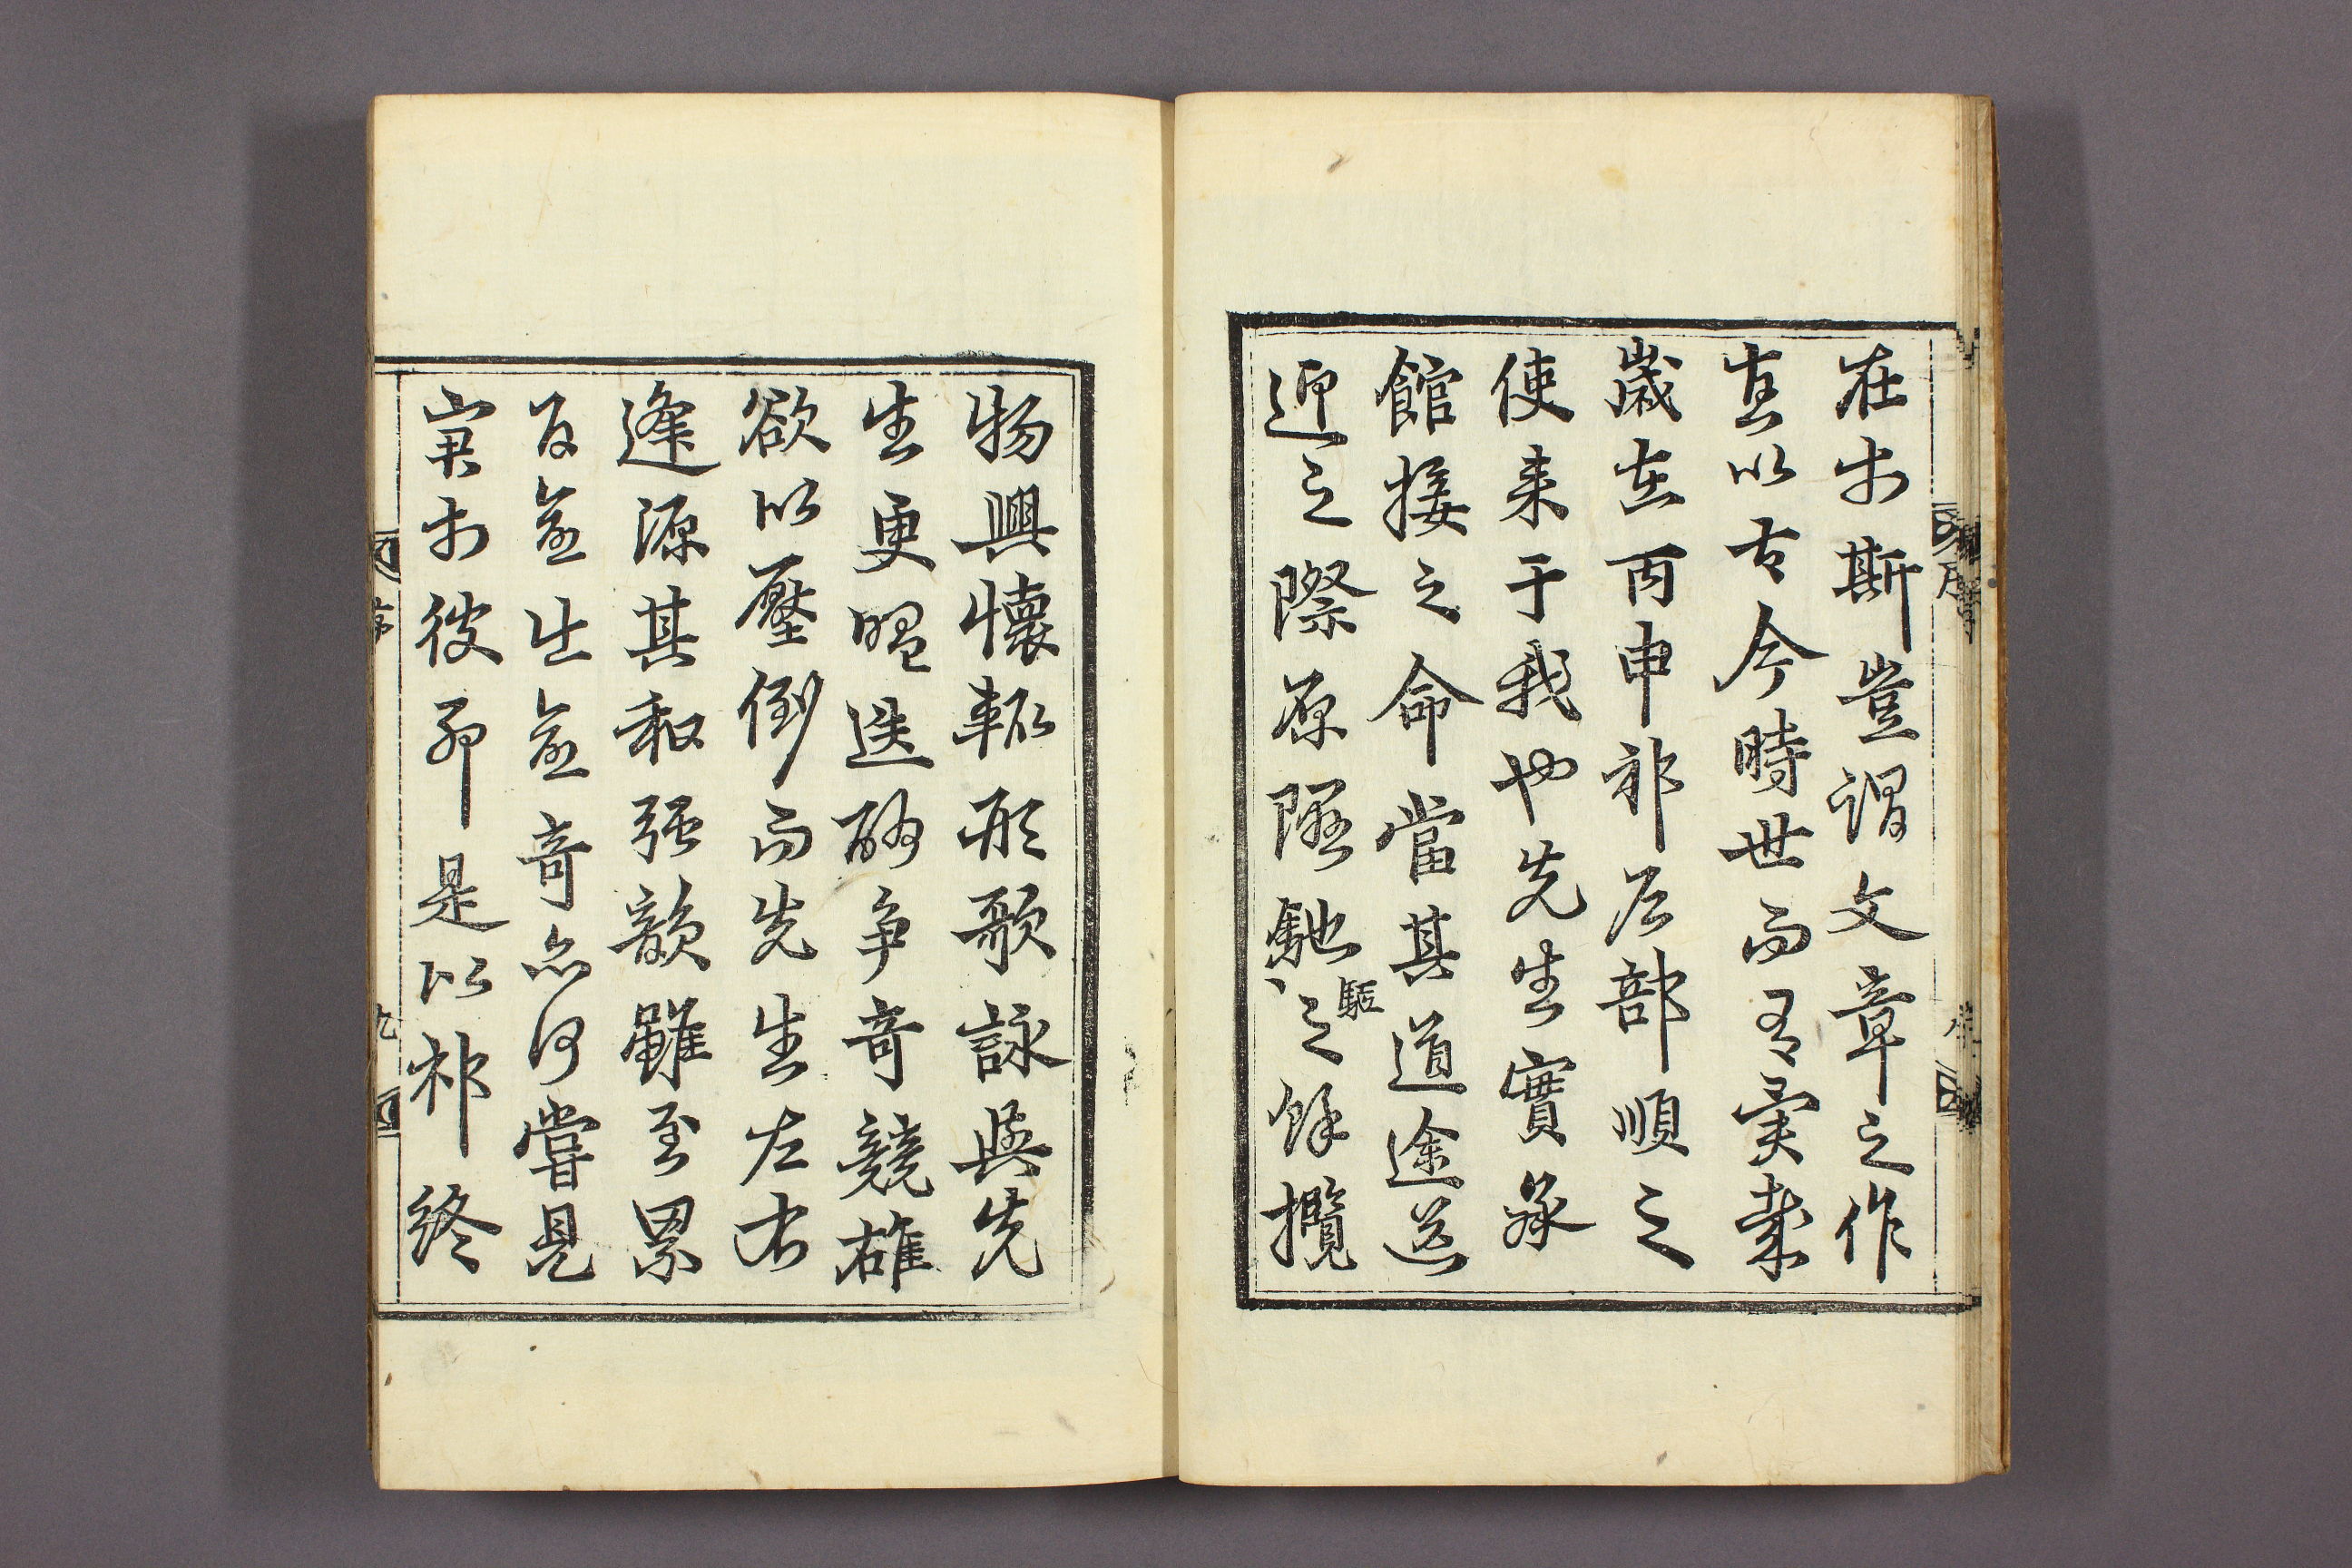 在於斯豈謂文章之作
直以古今時世而有異哉
歲在丙申祁戶部順之
使来于我也先生實承
館接之命當其道途送
迎之際原隰馳驅之餘攬
物興懷輒形歌詠與先
生更唱迭酬争奇競雄
欲以壓倒而先生左右
逢源其和强韻雖至累
百愈出愈奇亦何嘗見
窘於彼耶是以祁終
序
九